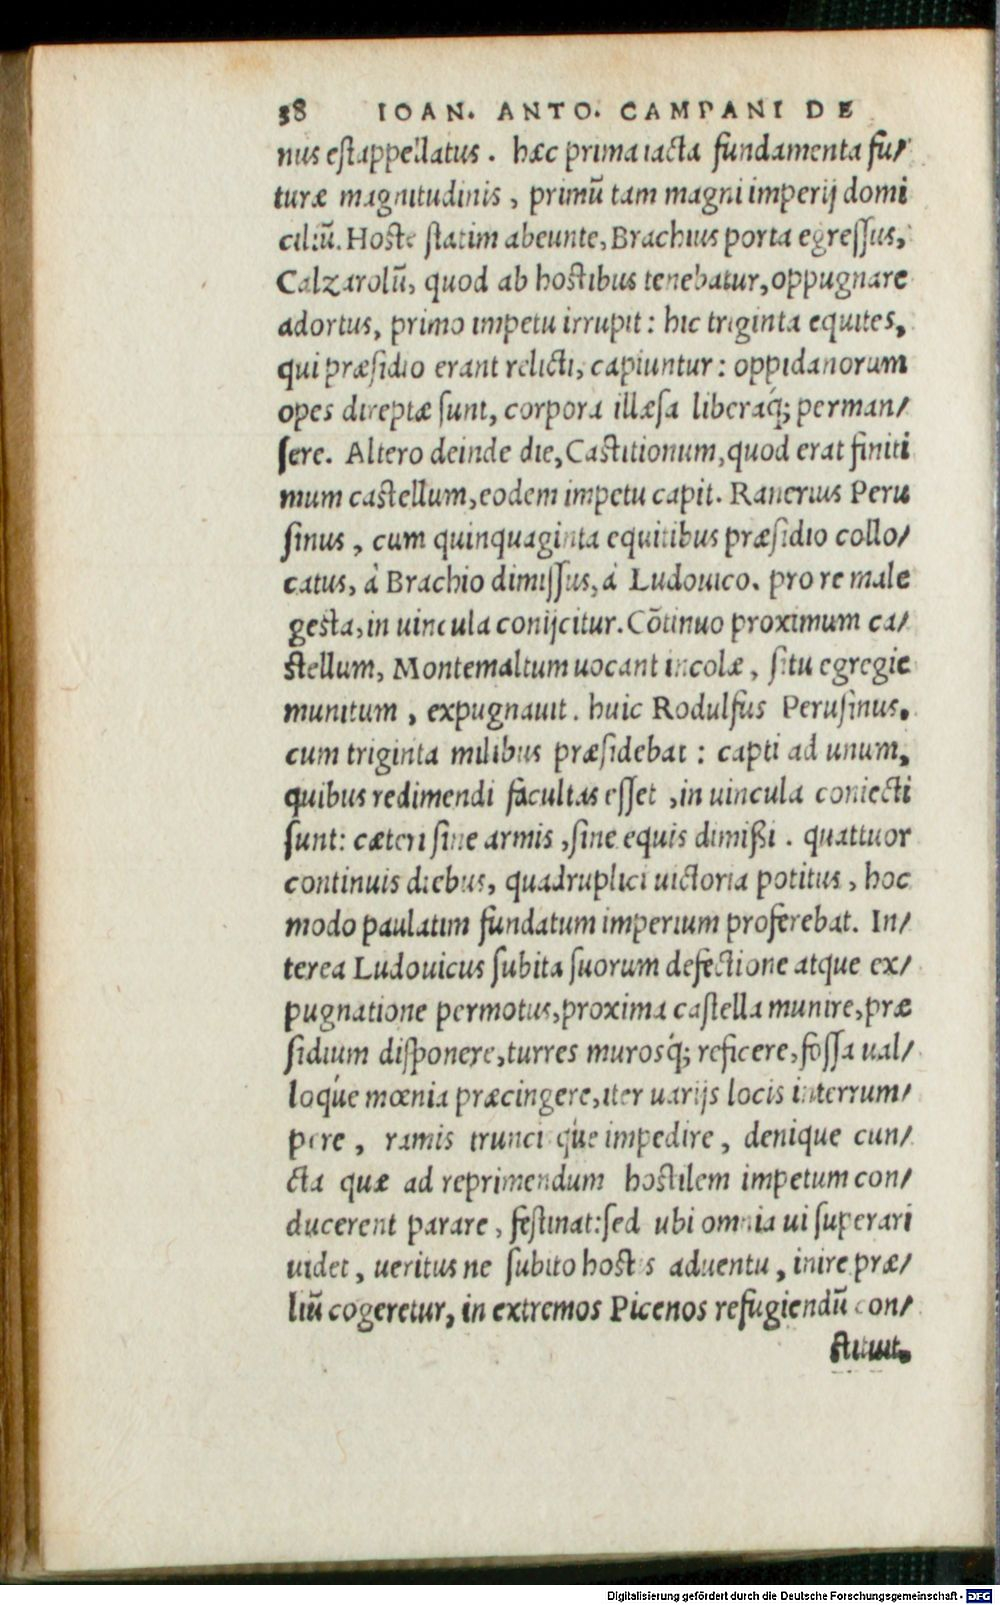 38 IOAN. ANTO. CAMPANI DE
nus est appellatus. hæc prima iacta fundamenta fu/
turæ magnitudinis, primũ tam magni imperij domi
ciliũ. Hoste statim abeunte, Brachius porta egressus,
Calzarolũ, quod ab hostibus tenebatur, oppugnare
adortus, primo impetu irrupit: hic triginta equites,
qui præsidio erant relicti, capiuntur: oppidanorum
opes direptæ sunt, corpora illæsa liberaq́; perman/
sere. Altero deinde die, Castitionum, quod erat finiti
mum castellum, eodem impetu capit. Ranerius Peru
sinus, cum quinquaginta equitibus præsidio collo/
catus, à Brachio dimissus, à Ludouico. pro re male
gesta, in uincula conijcitur. Cõtinuo proximum ca/
stellum, Montemaltum uocant incolæ, situ egregie
munitum, expugnauit. huic Rodulfus Perusinus.
cum triginta milibus præsidebat: capti ad unum,
quibus redimendi facultas esset, in uincula coniecti
sunt: cæteri sine armis, sine equis dimißi. quattuor
continuis diebus, quadruplici uictoria potitus, hoc
modo paulatim fundatum imperium proferebat. In/
terea Ludouicus subita suorum defectione atque ex/
pugnatione permotus, proxima castella munire, præ
sidium disponere, turres murosq́; reficere, fossa ual/
loq́ue mœnia præcingere, iter uarijs locis interrum/
pere, ramis truncisq́ue impedire, denique cun/
cta quæ ad reprimendum hostilem impetum con/
ducerent parare, festinat: sed ubi omnia ui superari
uidet, ueritus ne subito hostis aduentu, inire præ/
liũ cogeretur, in extremos Picenos refugiendũ con/
stituit.
Digitalisierung gefördert durch die Deutsche Forschungsgemeinschaft - DFG